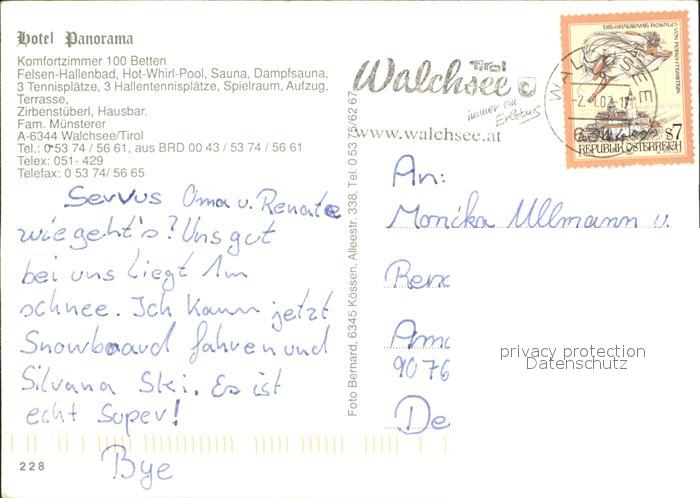 Hotel Panorama
Komfortzimmer 100 Betten
Felsen-Hallenbad, Hot-Whirl-Pool, Sauna, Dampfsauna,
3 Tennisplätze, 3 Hallentennisplätze, Spielraum, Aufzug,
Terrasse,
Zirbenstüberl, Hausbar.
Fam. Münsterer
A-6344 Walchsee/Tirol
Tel.: 0 53 74 / 56 61, aus BRD 00 43 / 53 74 / 56 61
Telex: 051 - 429
Telefax: 0 53 74 / 56 65
Servus Oma u. Renate
wie geht's? Uns gut
bei uns liegt 1m
schnee. Ich kann jetzt
Snowboard fahren und
Silvana Ski. Es ist
echt Super!
Bye
228
Foto Bernard, 6345 Kössen, Alleestr. 338, Tel. 0 53 75/62 67
Tirol
Walchsee
immer ein
Erlebnis
www.walchsee.at
WALCHSEE
DIE GRAUSAME ROSALIA VON FORCHTENSTEIN
S7
REPUBLIK ÖSTERREICH
An:
Monika Ullmann u.
Ren
9076
De
privacy protection
Datenschutz